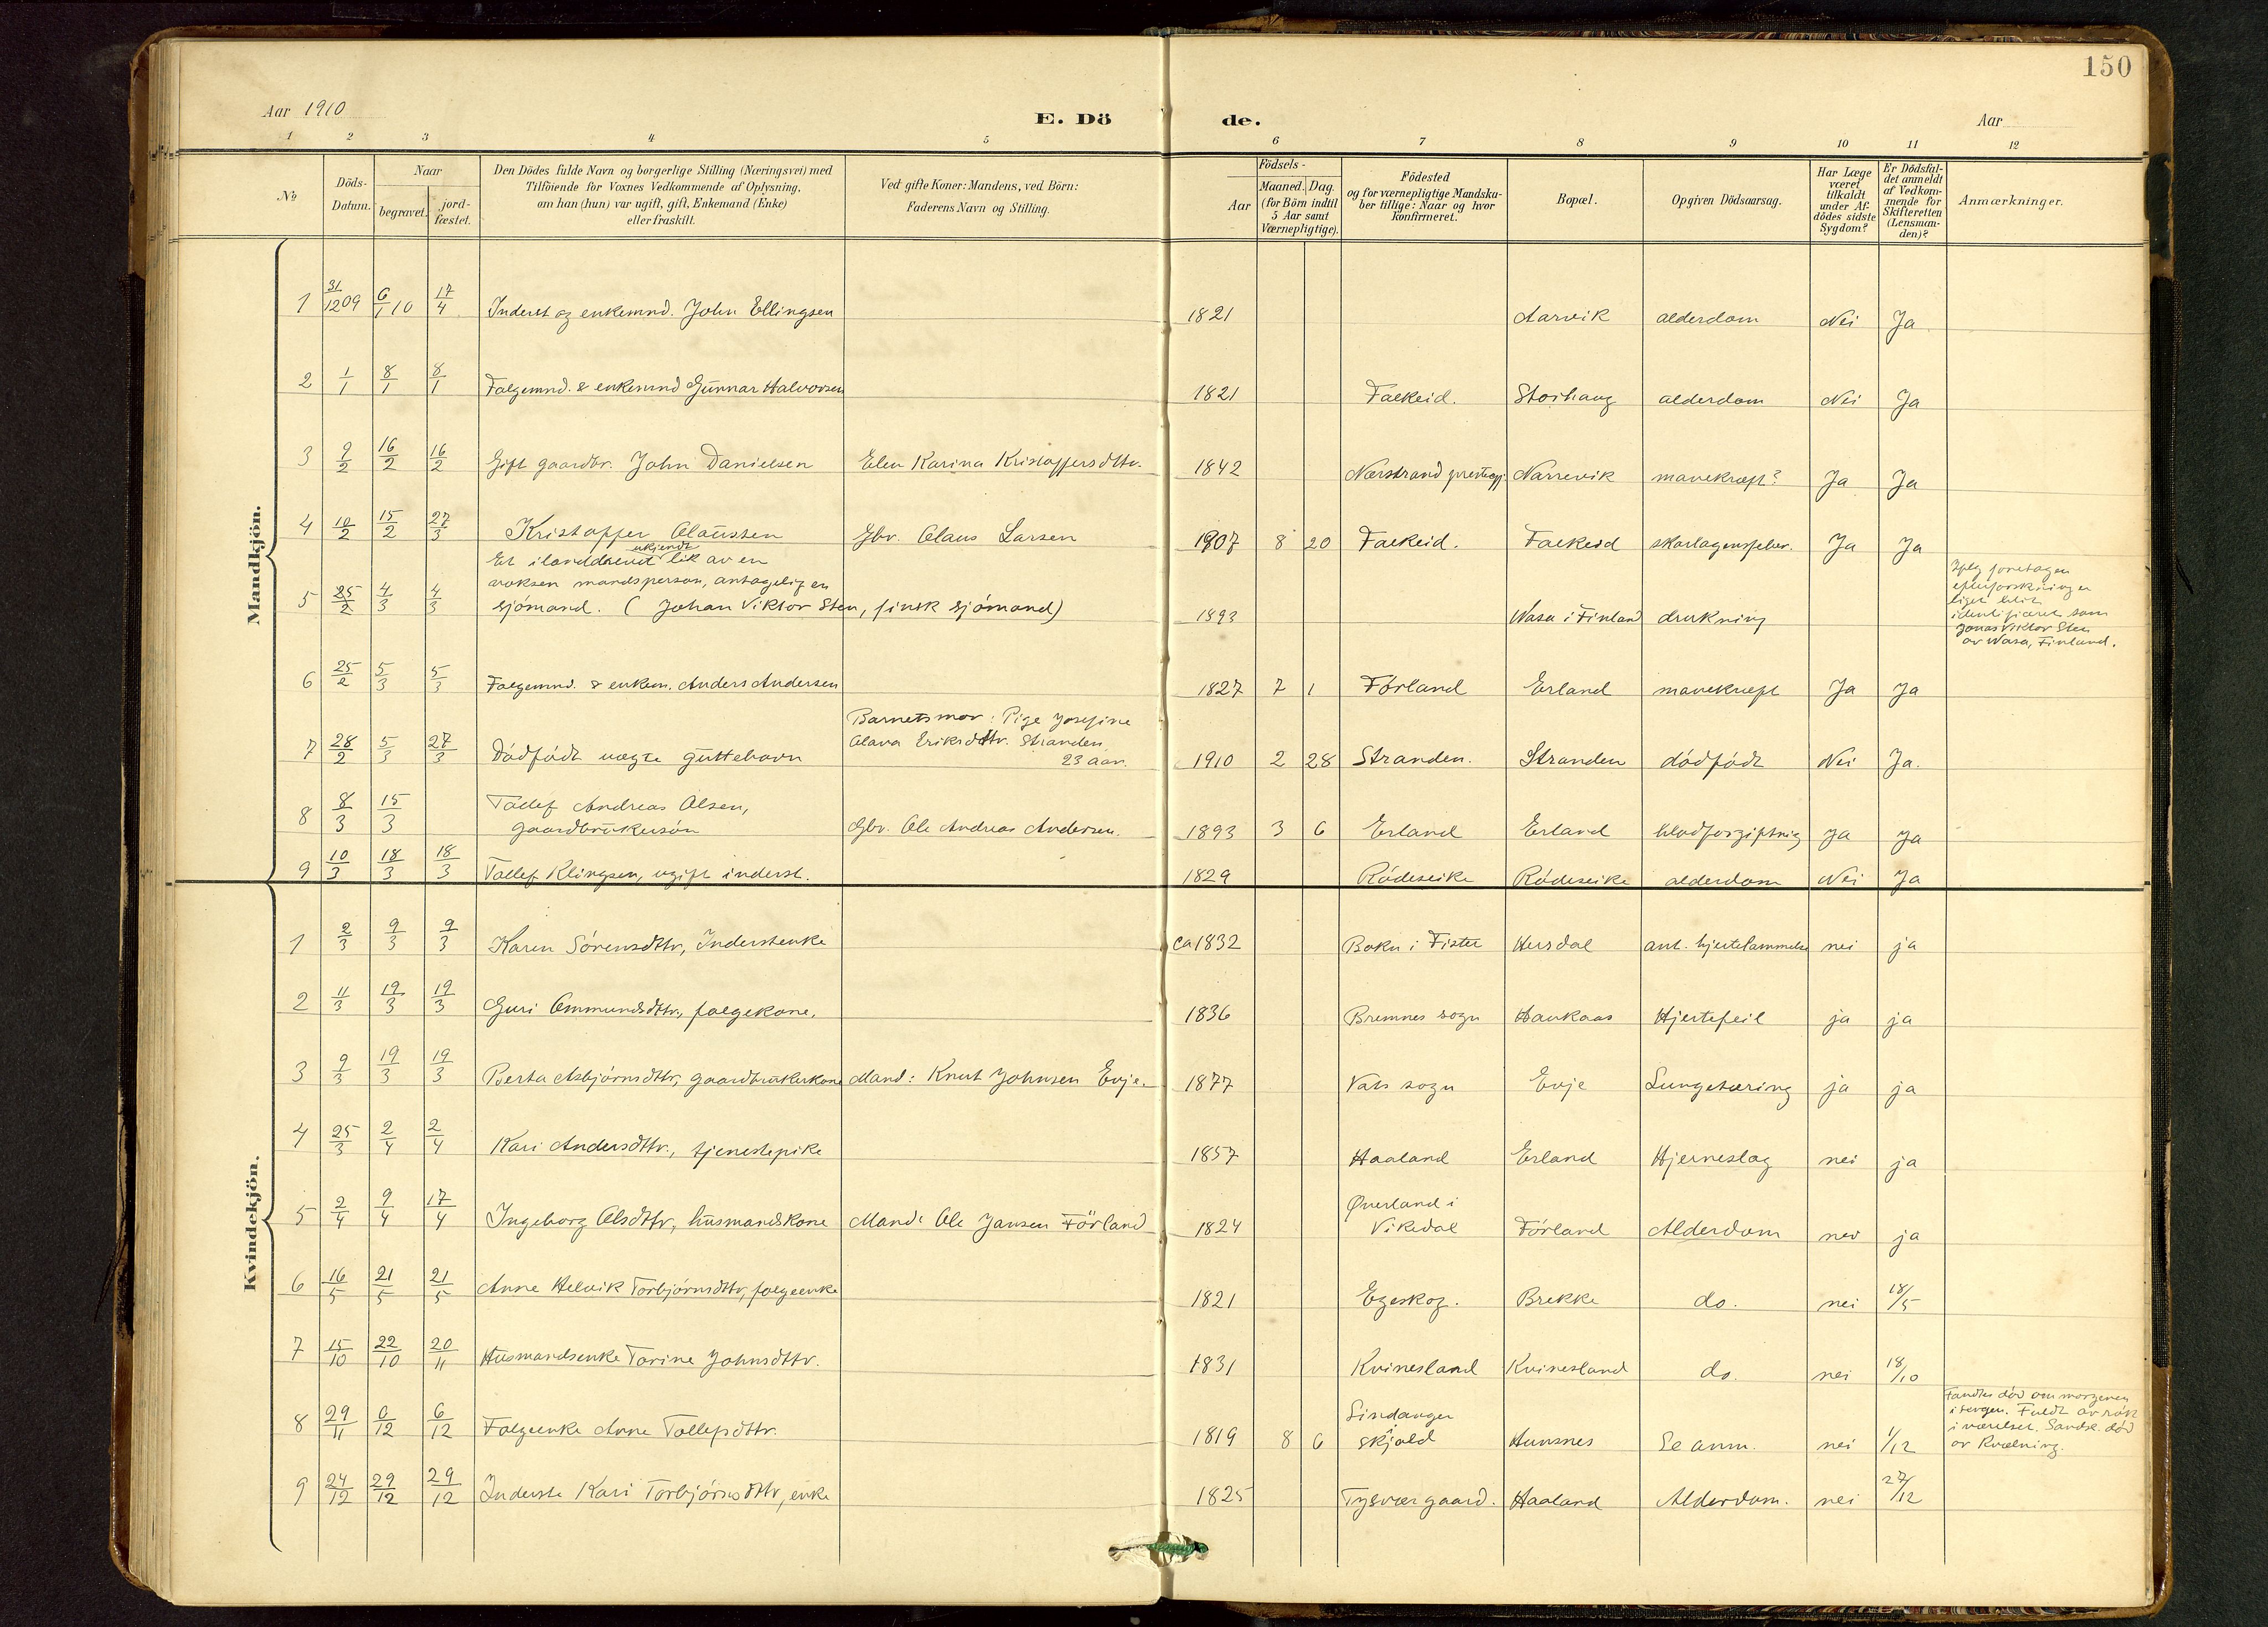 150
Aar 1910
E. Dö de.
Aar
1 2 3 4 5 6 7 8 9 10 11 12
№
Döds-
Datum.
Naar
begravet.
jord-
fæstet.
Den Dödes fulde Navn og borgerlige Stilling (Næringsvei) med
Tilföiende for Voxnes Vedkommende af Oplysning,
om han (hun) var ugift, gift, Enkemand (Enke)
eller fraskilt.
Ved gifte Koner: Mandens, ved Börn:
Faderens Navn og Stilling.
Födsels-
Aar
Maaned. Dag.
(for Börn indtil
5 Aar samt
Værnepligtige).
Födested
og for værnepligtige Mandska-
ber tillige: Naar og hvor
Konfirmeret.
Bopæl.
Opgiven Dödsaarsag.
Har Læge
været
tilkaldt
under Af-
dödes sidste
Sygdom?
Er Dödsfal-
det anmeldt
af Vedkom-
mende for
Skifteretten
(Lensman-
den)?
Anmærkninger.
Mandkjön.
1 31/12 09 6/1 10 17/4 Inderst og enkemnd. John Ellingsen 1821 Aarvik alderdom Nei Ja
2 1/1 8/1 8/1 Folgemnd. & enkemnd Gunnar Halvorsen 1821 Falkeid. Storhaug alderdom Nei Ja
3 9/2 16/2 16/2 Gift gaardbr. John Danielsen Elen Karina Kristoffersdttr. 1842 Nærstrand prestegj. Narrevik mavekræft? Ja Ja
4 10/2 15/2 27/3 Kristoffer Olaussen Gbr. Olaus Larsen 1907 8 20 Falkeid. Falkeid skarlagensfeber. Ja Ja
ukjendt
Et ilanddrevet lik av en
voksen mandsperson, antagelig en
5 25/2 4/3 4/3 sjömand. (Johan Viktor Sten, finsk sjömand) 1893 Wasa i Finland drukning
Iflg foretagen
efterforskninger
liget blit
identificeret som
Jonas Viktor Sten
av Wasa, Finland.
6 25/2 5/3 5/3 Folgemnd. & enkem. Anders Andersen 1827 7 1 Förland Erland mavekræft Ja Ja
Barnetsmor: Pige Josefine
Olava Eriksdttr. Stranden
23 aar.
7 28/2 5/3 27/3 Dödfödt uægte guttebarn 1910 2 28 Stranden. Stranden dödfödt Nei Ja.
Tollef Andreas Olsen,
8 8/3 15/3 gaardbrukersön Gbr. Ole Andreas Andersen. 1893 3 6 Erland Erland blodforgiftnig Ja Ja
9 10/3 18/3 18/3 Tollef Klingsen, ugift inderst. 1829 Rödseike Rödseike alderdom Nei Ja
Kvindekjön.
1 2/3 9/3 9/3 Karen Sörensdttr, Inderstenke ca 1832 Bokn i Fister Hersdal ant. hjertelammelse nei ja
2 11/3 19/3 19/3 Guri Ommundsdttr, folgekone. 1836 Bremnes sogn Haukaas Hjertefeil ja ja
3 9/3 19/3 19/3 Berta Asbjörnsdttr, gaardbrukerkone Mand: Knut Johnsen Evje. 1877 Vats sogn Evje Lungetæring ja ja
4 25/3 2/4 2/4 Kari Andersdttr., tjenestepike 1857 Haaland Erland Hjerneslag nei ja
5 2/4 9/4 17/4 Ingeborg Olsdttr, husmandskone Mand: Ole Jansen Förland 1824
Øverland i
Vikedal Förland Alderdom nei ja
6 16/5 21/5 21/5 Anne Helvik Torbjörnsdttr, folgeenke 1821 Egeskog. Brekke do. nei 18/5
7 15/10 22/10 20/11 Husmandsenke Torine Johnsdttr. 1831 Kvinesland Kvinesland do. nei 18/10
8 29/11 6/12 6/12 Folgeenke Anne Tollefsdttr. 1819 8 6
Sindanger
Skjold Hunsnes Se anm. nei 1/12
Fandtes död om morgenen
i sengen. Fuldt av rök
i værelset. Sands. död
av kvælning.
9 24/12 29/12 29/12 Inderste Kari Torbjörnsdttr, enke 1825 Tysvær gaard. Haaland Alderdom. nei 27/12